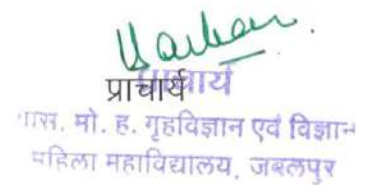 प्राचार्य
प्राचार्य
मो. ह. गृहविज्ञान एवं विज्ञान
महिला महाविद्यालय, जबलपुर